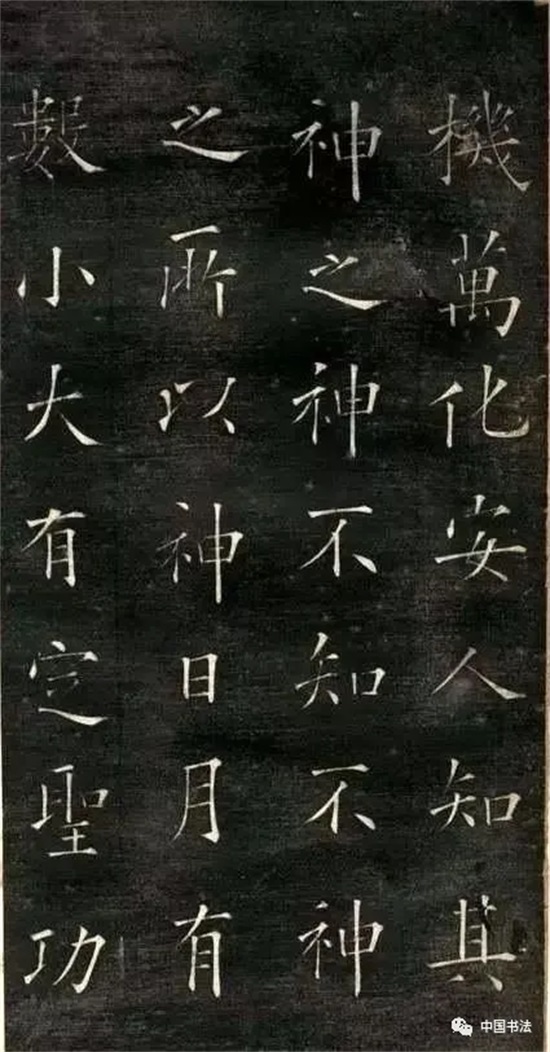 機萬化安人知其
神之神不知不神
之所以神日月有
數小大有定聖功
中国书法